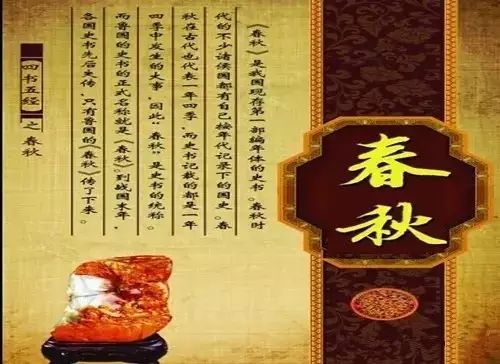 春秋
《春秋》是我国现存第一部编年体的史书。春秋时
代的不少诸侯国都有自己按年代记录下的国史。春
秋在古代也代表一年四季，而史书记载的都是一年
四季中发生的大事，因此“春秋”是史书的统称。
而鲁国的史书的正式名称就是《春秋》。到战国末年，
各国史书先后史传，只有鲁国的《春秋》传了下来。
四书五经 之 春秋